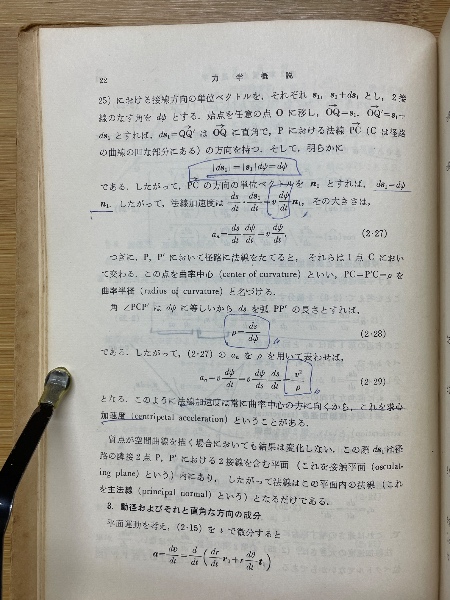 22 力学概説
25) における接線方向の単位ベクトルを,それぞれ s₁, s₁+ds₁ とし,2接
線のなす角を dψ とする.始点を任意の点 O に移し,OQ=s₁, OQ'=s₁+
ds₁ とすれば,ds₁=QQ' は OQ に直角で,P における法線 PC (C は径路
の曲線の凹な部分にある) の方向を持つ.そして,明らかに
|ds₁|=|s₁|dψ=dψ
である.したがって,PC の方向の単位ベクトルを n₁ とすれば,ds₁=dψ
n₁. したがって,法線加速度は ds/dt ds₁/dt = v dψ/dt n₁, その大きさは,
aₙ = ds/dt dψ/dt = v dψ/dt. (2·27)
つぎに,P, P' において径路に法線をたてると,それらは1点 C におい
て交わる.この点を曲率中心 (center of curvature) といい,PC=P'C=ρ を
曲率半径 (radius of curvature) と名づける.
角 ∠PCP' は dψ に等しいから ds を弧 PP' の長さとすれば,
ρ = ds/dψ (2·28)
である.したがって,(2·27) の aₙ を ρ を用いて表わせば,
aₙ = v dψ/dt = v dψ/ds ds/dt = v²/ρ (2·29)
となる.このように法線加速度は常に曲率中心の方に向くから,これを求心
加速度 (centripetal acceleration) ということがある.
質点が空間曲線を描く場合においても結果は変化しない.この際 ds₁ は径
路の隣接2点 P, P' における2接線を含む平面 (これを接触平面 (osculat-
ing plane) という) 内にあり,したがって法線はこの平面内の法線 (これ
を主法線 (principal normal) という) となるだけである.
3. 動径およびそれと直角な方向の成分
平面運動を考え,(2·15) を t で微分すると
a = dv/dt = d/dt ( dr/dt · r₁ + r dθ/dt · t₁ )